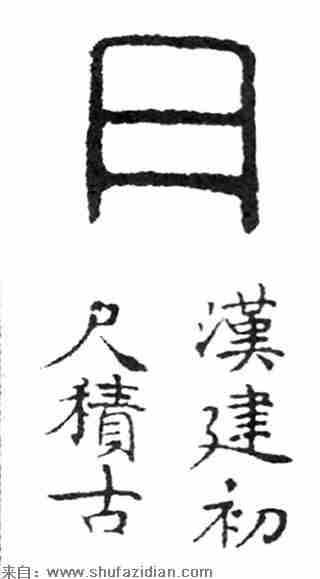 日
漢建初
尺積古
来自：www.shufazidian.com